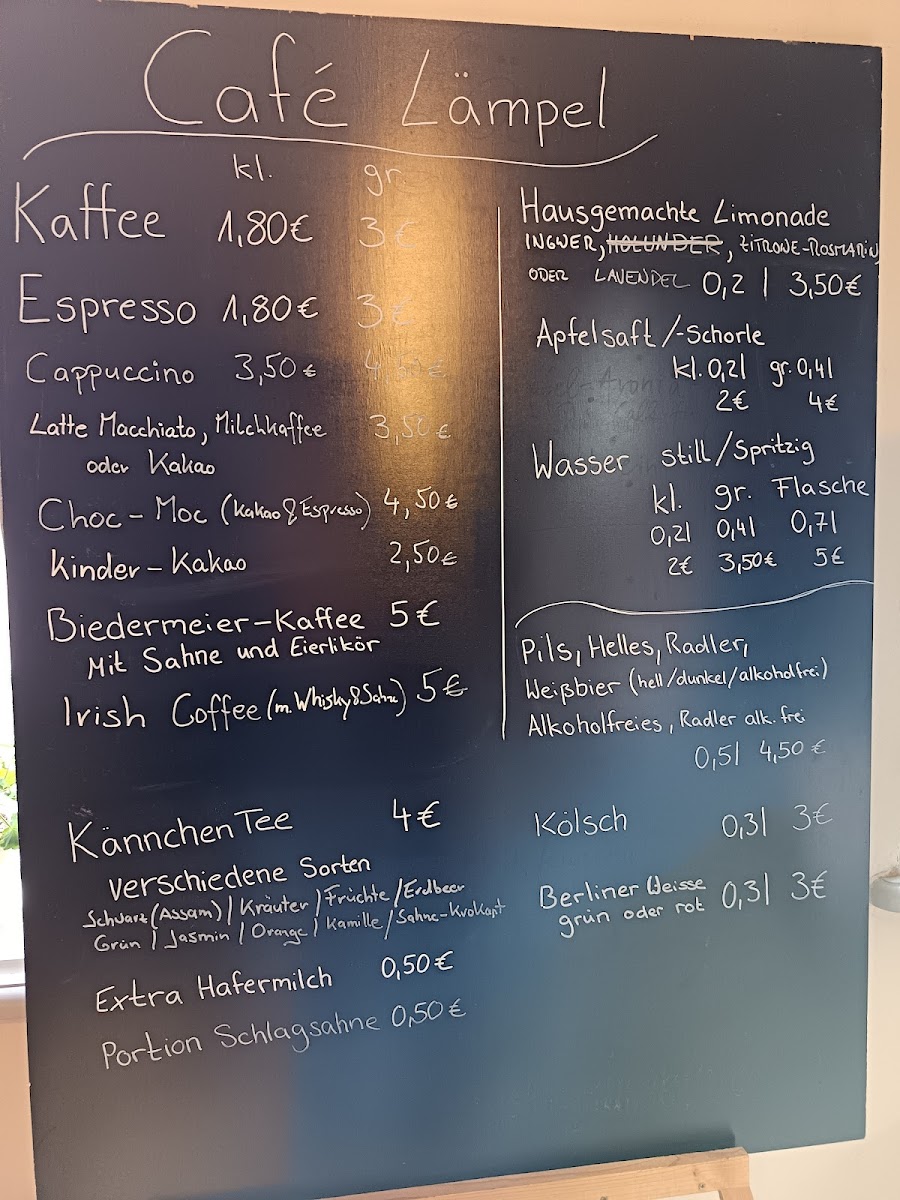 Café Lämpel
kl. gr.
Kaffee 1,80€ 3€
Espresso 1,80€ 3€
Cappuccino 3,50€
Latte Macchiato, Milchkaffee 3,50€
oder Kakao
Choc-Moc (Kakao & Espresso) 4,50€
Kinder-Kakao 2,50€
Biedermeier-Kaffee 5€
Mit Sahne und Eierlikör
Irish Coffee (m. Whisky & Sahne) 5€
Kännchen Tee 4€
verschiedene Sorten
Schwarz (Assam) / Kräuter / Früchte / Erdbeer
Grün / Jasmin / Orange / Kamille / Sahne-Krokant
Extra Hafermilch 0,50€
Portion Schlagsahne 0,50€
Hausgemachte Limonade
INGWER, HOLUNDER, ZITRONE-ROSMARIN,
ODER LAVENDEL 0,2l 3,50€
Apfelsaft/-Schorle
kl. 0,2l gr. 0,4l
2€ 4€
Wasser still/Spritzig
kl. gr. Flasche
0,2l 0,4l 0,7l
2€ 3,50€ 5€
Pils, Helles, Radler,
Weißbier (hell/dunkel/alkoholfrei)
Alkoholfreies, Radler alk. frei
0,5l 4,50€
Kölsch 0,3l 3€
Berliner Weisse 0,3l 3€
grün oder rot